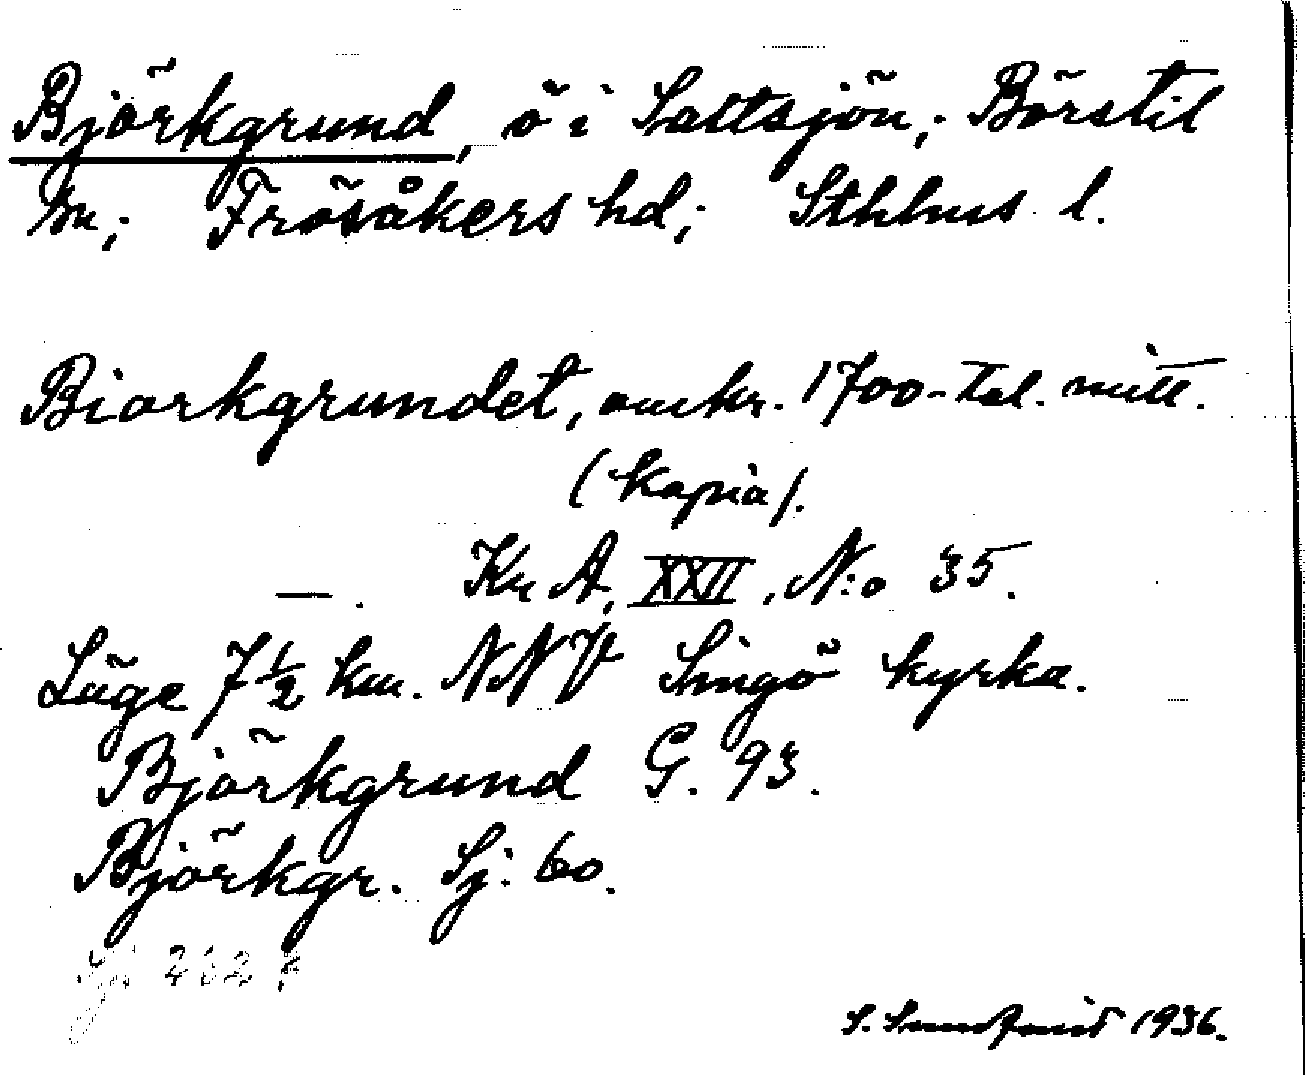 Björkgrund, ö i Saltsjön; Börstil
sn; Frösåkers hd; Sthlms l.
Biorkgrundet, omkr. 1700-tal. mitt.
(Kopia).
—. Kr A, XXII, N:o 35.
Läge 7 1/2 km. NNV Singö kyrka.
Björkgrund G. 93.
Björkgr. Sj. 60.
S. Sundqvist 1936.